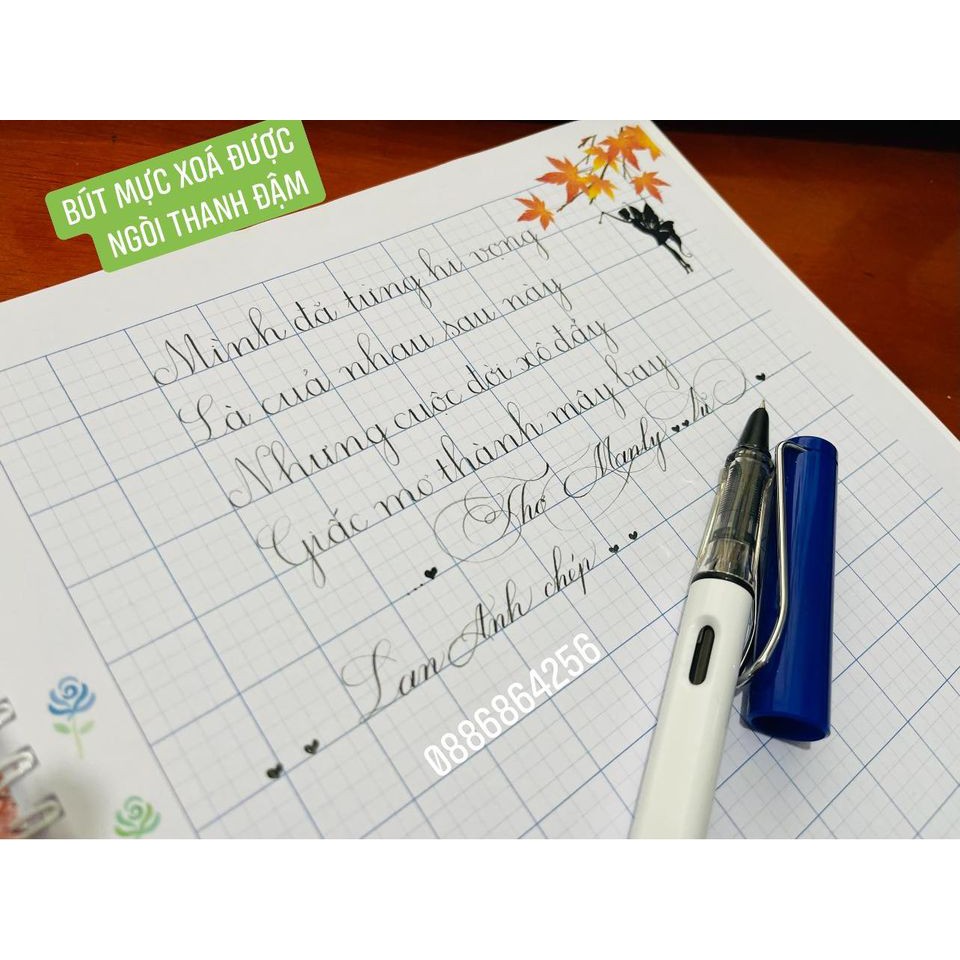 BÚT MỰC XOÁ ĐƯỢC
NGÒI THANH ĐẬM
Mình đã từng hi vọng
Là của nhau sau này
Nhưng cuộc đời xô đẩy
Giấc mơ thành mây bay
... Thơ Manly
Lan Anh chép
0886864256